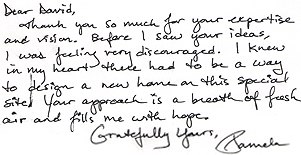 Dear David,
Thank you so much for your expertise
and vision. Before I saw your ideas,
I was feeling very discouraged. I knew
in my heart there had to be a way
to design a new home on this special
site. Your approach is a breath of fresh
air and fills me with hope.
Gratefully Yours,
Pamela